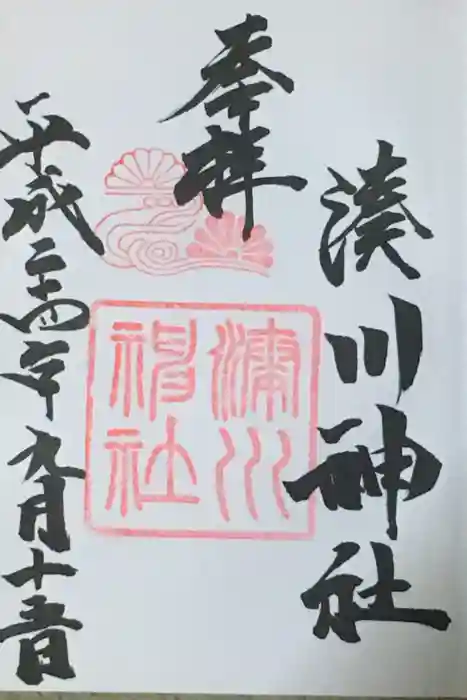 湊川神社
奉拝
湊川
神社
平成二十四年九月十五日